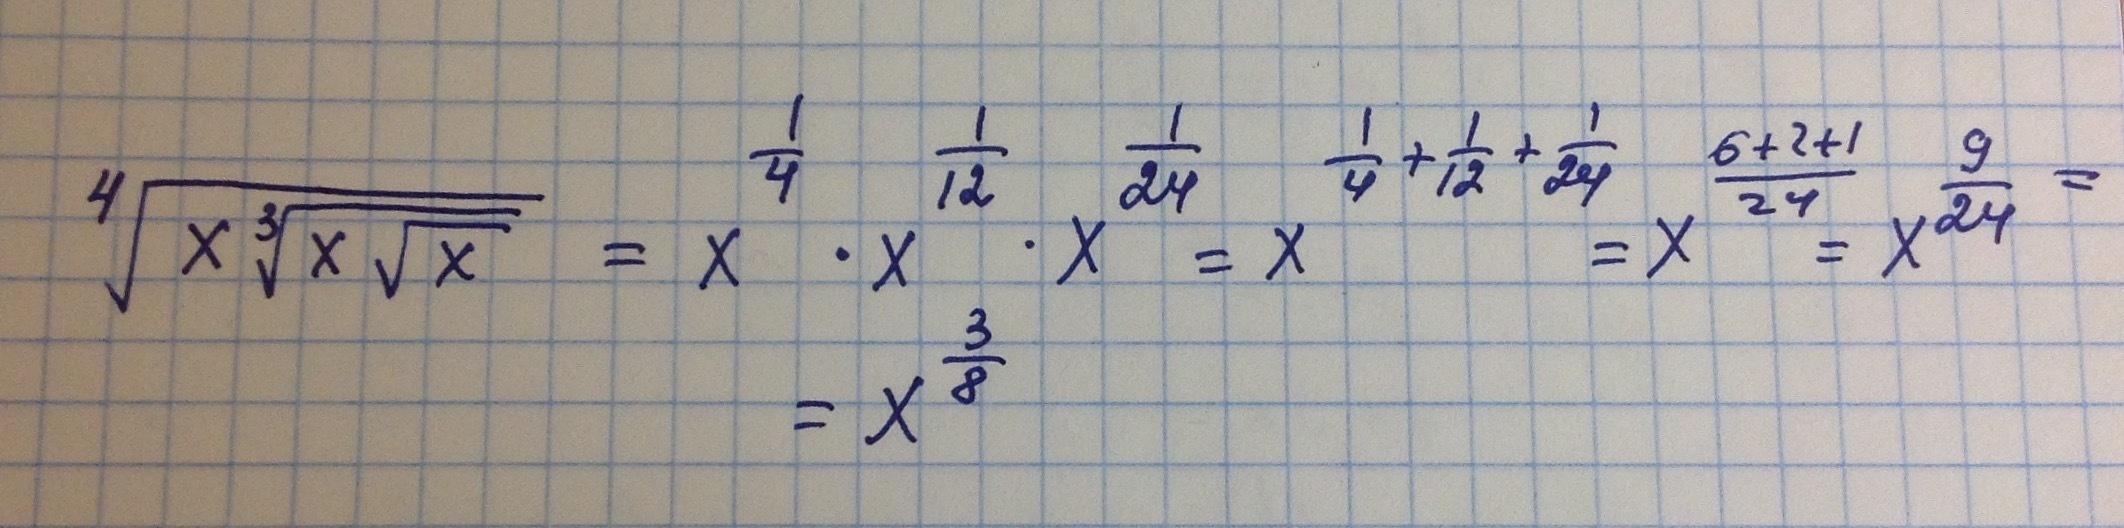 ⁴√(x ³√(x √x)) = x^(1/4) · x^(1/12) · x^(1/24) = x^(1/4 + 1/12 + 1/24) = x^((6+2+1)/24) = x^(9/24) =
= x^(3/8)